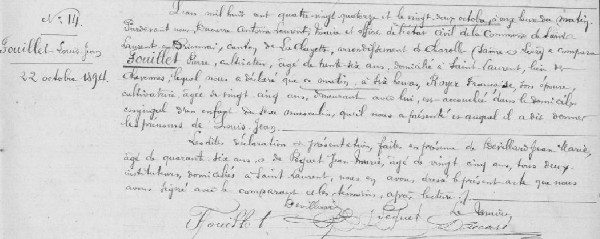 N.º 14.
Fouillet Louis Jean
22 octobre 1894.
L'an mil huit cent quatre-vingt quatorze et le vingt deux octobre, à onze heures du matin,
Pardevant nous, Ducarre Antoine Laurent, Maire et officier de l'état Civil de la Commune de Saint
Laurent en Brionnais, canton de La Clayette, arrondissement de Charolles (Saône & Loire) a comparu
Fouillet Pierre, cultivateur, âgé de trente six ans, domicilié à Saint-Laurent, lieu de
lequel nous a déclaré que ce matin, à trois heures, Françoise, son épouse,
cultivatrice, âgée de vingt cinq ans, demeurant avec lui, est accouchée dans le domicile
conjugal d'un enfant du sexe masculin, qu'il nous a présenté et auquel il a dit donner
les prénoms de Louis-Jean.
Les dites déclaration et présentation, faites en présence de Devillard Jean Marie,
âgé de quarante six ans, & de Péguet Jean Marie, âgé de vingt cinq ans, tous deux
instituteurs, domiciliés à Saint Laurent, nous en avons dressé le présent acte que nous
avons signé avec le comparant et les témoins, après lecture.
Devillard Le Maire,
Fouillet Péguet Ducarre